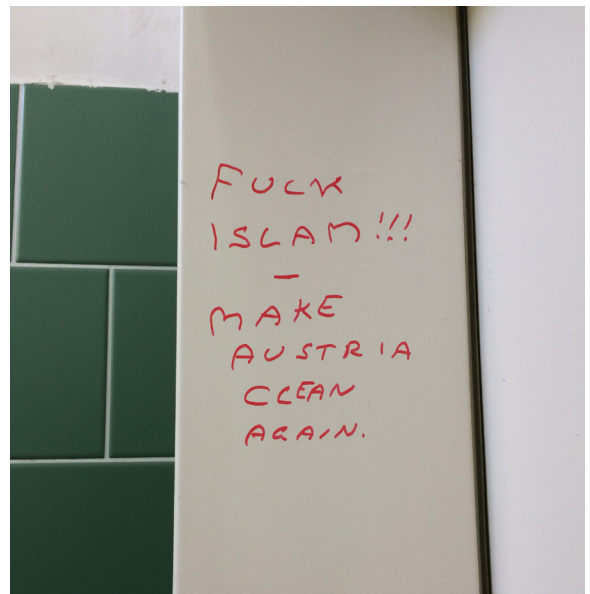 FUCK
ISLAM!!!
–
MAKE
AUSTRIA
CLEAN
AGAIN.